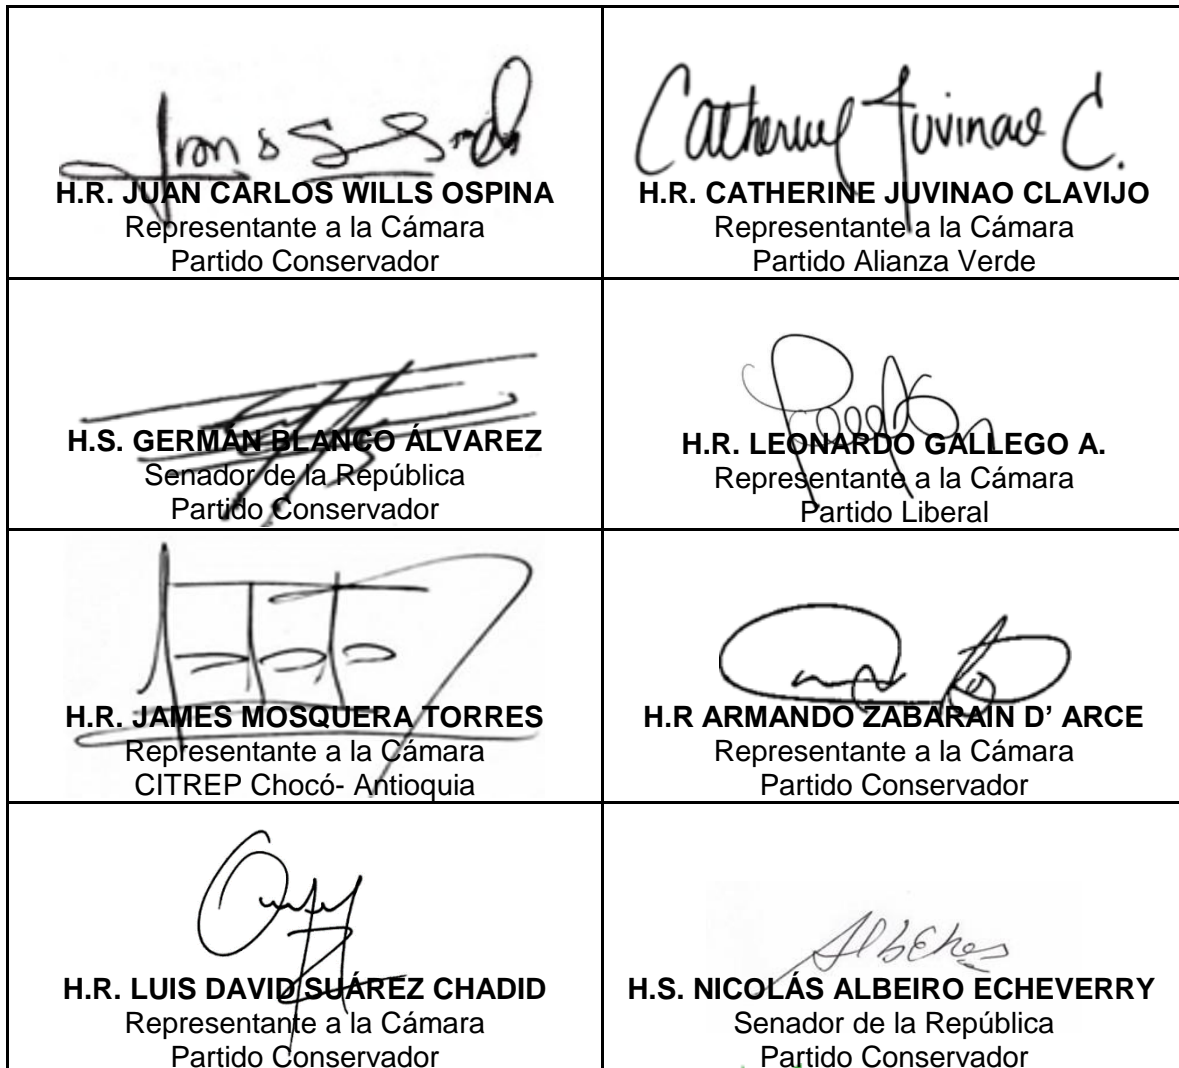 H.R. JUAN CARLOS WILLS OSPINA
Representante a la Cámara
Partido Conservador
Catherine Juvinao C.
H.R. CATHERINE JUVINAO CLAVIJO
Representante a la Cámara
Partido Alianza Verde
H.S. GERMÁN BLANCO ÁLVAREZ
Senador de la República
Partido Conservador
H.R. LEONARDO GALLEGO A.
Representante a la Cámara
Partido Liberal
H.R. JAMES MOSQUERA TORRES
Representante a la Cámara
CITREP Chocó- Antioquia
H.R ARMANDO ZABARAIN D’ ARCE
Representante a la Cámara
Partido Conservador
H.R. LUIS DAVID SUÁREZ CHADID
Representante a la Cámara
Partido Conservador
H.S. NICOLÁS ALBEIRO ECHEVERRY
Senador de la República
Partido Conservador